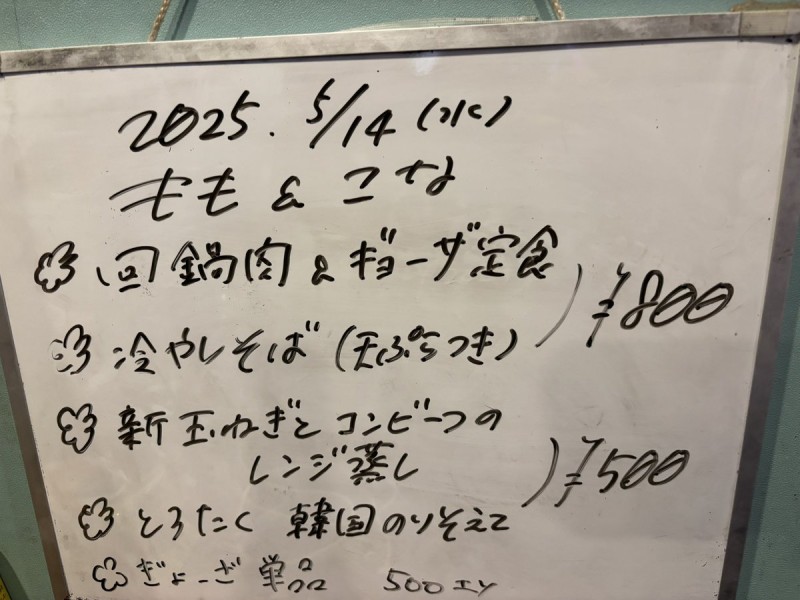 2025. 5/14 (水)
もも & こな
回鍋肉 & ギョーザ定食
冷やしそば (天ぷらつき)
¥800
新玉ねぎとコンビーフの
レンジ蒸し
¥500
とろたく 韓国のりそえて
ぎょーざ 単品 500エン